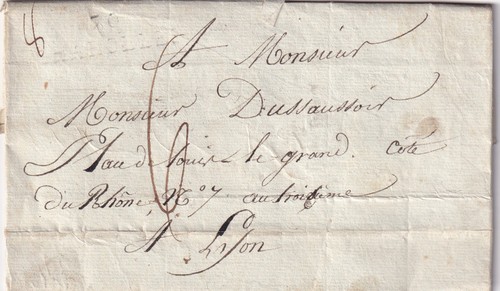 A Monsieur
Monsieur Dussaussoir
Place de Louis le grand. coté
du Rhône N.º 7 au troisième
A Lyon
6